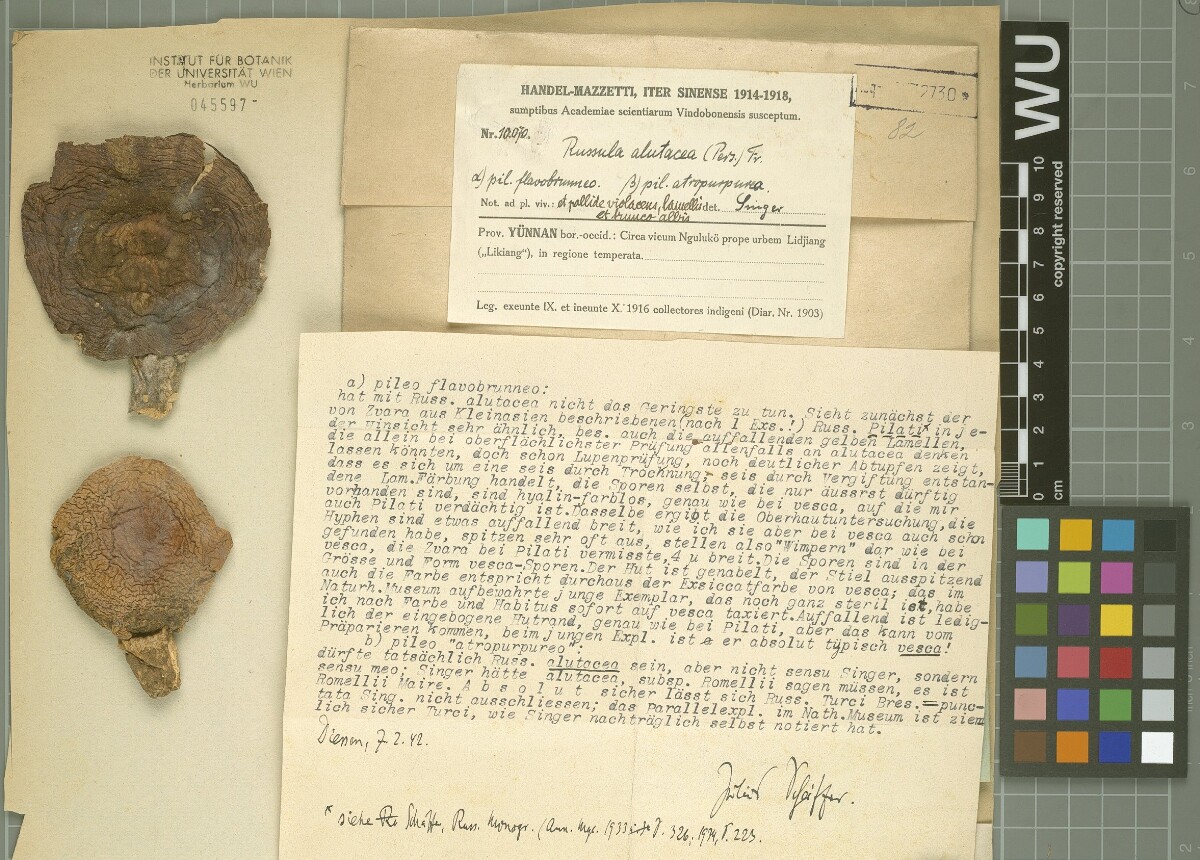 INSTITUT FÜR BOTANIK
DER UNIVERSITÄT WIEN
Herbarium WU
045597-
HANDEL-MAZZETTI, ITER SINENSE 1914-1918,
sumptibus Academiae scientiarum Vindobonensis susceptum.
Nr. 10.070.
Russula alutacea (Pers.) Fr.
a) pil. flavobrunneo. β) pil. atropurpurea.
Not. ad pl. viv.: et pallide violaceus, lamellis det. Singer
et trunco albis
Prov. YÜNNAN bor.-occid.: Circa vicum Ngulukö prope urbem Lidjiang
(„Likiang“), in regione temperata.
Leg. exeunte IX. et ineunte X. 1916 collectores indigeni (Diar. Nr. 1903)
2730
82
a) pileo flavobrunneo:
hat mit Russ. alutacea nicht das Geringste zu tun. Sieht zunächst der
von Zvara aus Kleinasien beschriebenen(nach 1 Exs.!) Russ. Pilati x in je-
der Hinsicht sehr ähnlich, bes. auch die auffallenden gelben Lamellen,
die allein bei oberflächlichster Prüfung allenfalls an alutacea denken
lassen könnten, doch schon Lupenprüfung, noch deutlicher Abtupfen zeigt,
dass es sich um eine seis durch Tröchnung, seis durch Vergiftung entstan-
dene Lam.Färbung handelt, die Sporen selbst, die nur äussrst dürftig
vorhanden sind, sind hyalin-farblos, genau wie bei vesca, auf die mir
auch Pilati verdächtig ist.Dasselbe ergibt die Oberhautuntersuchung,die
Hyphen sind etwas auffallend breit, wie ich sie aber bei vesca auch schon
gefunden habe, spitzen sehr oft aus, stellen also "Wimpern" dar wie bei
vesca, die Zvara bei Pilati vermisste,4 u breit.Die Sporen sind in der
Grösse und Form vesca-Sporen.Der Hut ist genabelt, der Stiel ausspitzend
auch die Farbe entspricht durchaus der Exsiccatfarbe von vesca; das im
Naturh.Museum aufbewahrte junge Exemplar, das noch ganz steril ist,habe
ich nach Farbe und Habitus sofort auf vesca taxiert.Auffallend ist ledig-
lich der eingebogene Hutrand, genau wie bei Pilati, aber das kann vom
Präparieren kommen, beim jungen Expl. ist er absolut typisch vesca!
b) pileo "atropurpureo":
dürfte tatsächlich Russ. alutacea sein, aber nicht sensu Singer, sondern
sensu meo; Singer hätte alutacea, subsp. Romellii sagen müssen, es ist
Romellii Maire. A b s o l u t sicher lässt sich Russ. Turci Bres.=punc-
tata Sing. nicht ausschliessen; das Parallelexpl. im Nath.Museum ist ziem
lich sicher Turci, wie Singer nachträglich selbst notiert hat.
Diessen, 7.2.42.
Julius Schäffer.
x siehe Schäffer, Russ. Monogr. (Ann. Myc. 1933 S. 326, 1934, S. 223.
WU
copyright reserved
0 1 2 3 4 5 6 7 8 9 10
cm